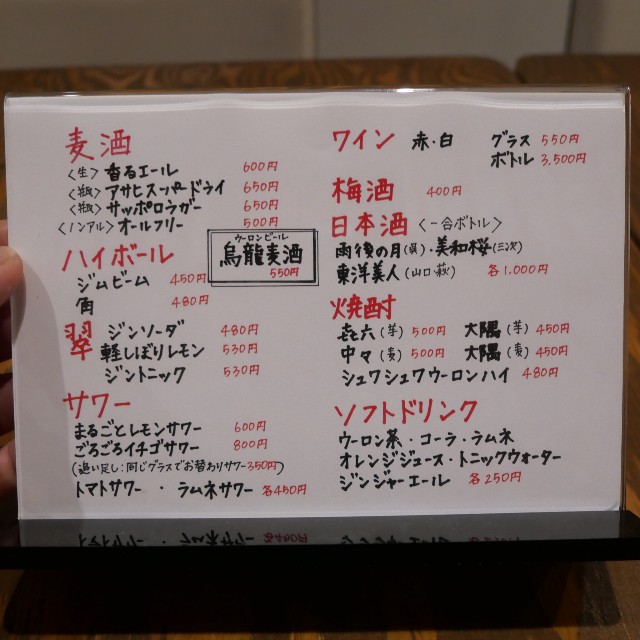 麦酒
〈生〉香るエール 600円
〈瓶〉アサヒスーパードライ 650円
〈瓶〉サッポロラガー 650円
〈ノンアル〉オールフリー 500円
ウーロンビール
烏龍麦酒
550円
ハイボール
ジムビーム 450円
角 480円
翠 ジンソーダ 480円
軽しぼりレモン 530円
ジントニック 530円
サワー
まるごとレモンサワー 600円
ごろごろイチゴサワー 800円
(追い足し:同じグラスでお替わりサワー350円)
トマトサワー・ラムネサワー 各450円
ワイン 赤・白 グラス 550円
ボトル 3,500円
梅酒 400円
日本酒〈一合ボトル〉
雨後の月(呉)・美和桜(三次)
東洋美人(山口萩) 各1,000円
焼酎
㐂六(芋) 500円 大隅(芋) 450円
中々(麦) 500円 大隅(麦) 450円
シュワシュワウーロンハイ 480円
ソフトドリンク
ウーロン茶・コーラ・ラムネ
オレンジジュース・トニックウォーター
ジンジャーエール 各250円